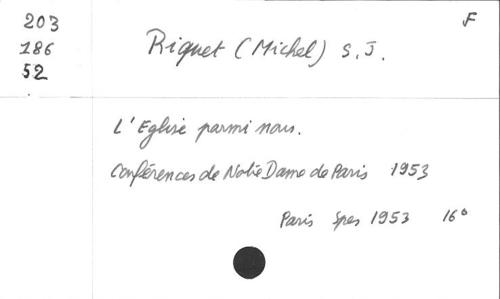 203
186
52
F
Riquet (Michel) S.J.
L'Eglise parmi nous.
Conférences de Notre Dame de Paris 1953
Paris Spes 1953 16°